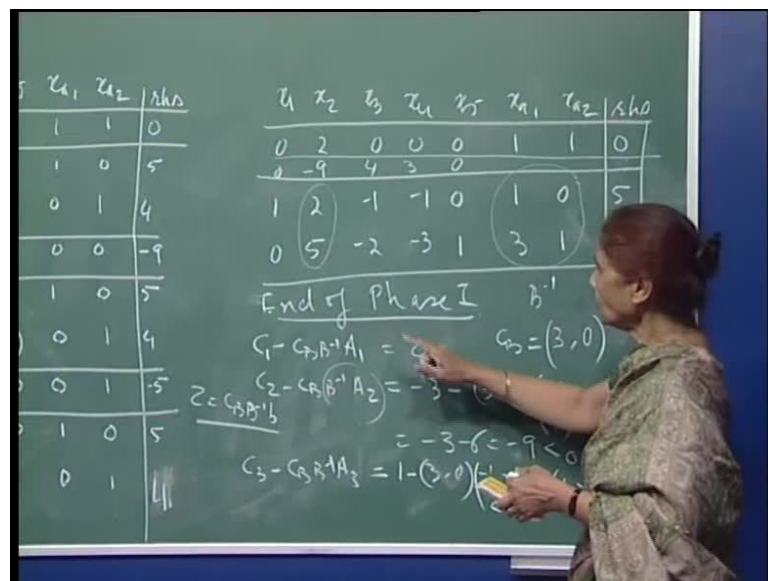 x_{a1} x_{a2} rhs
1 1 0
1 0 5
0 1 4
0 0 -9
1 0 5
0 1 4
0 1 -5
1 0 5
0 1
x_1 x_2 x_3 x_4 x_5 x_{a1} x_{a2} rhs
0 2 0 0 0 1 1 0
0 -9 4 3 0
1 2 -1 -1 0 1 0 5
0 5 -2 -3 1 3 1
End of Phase I B^{-1}
C_1 - C_B B^{-1} A_1 = C_B = (3, 0)
C_2 - C_B (B^{-1} A_2) = -3 -
Z = C_B B^{-1} b
= -3 - 6 = -9 < 0
C_3 - C_B B^{-1} A_3 = 1 - (3, 0) (-1